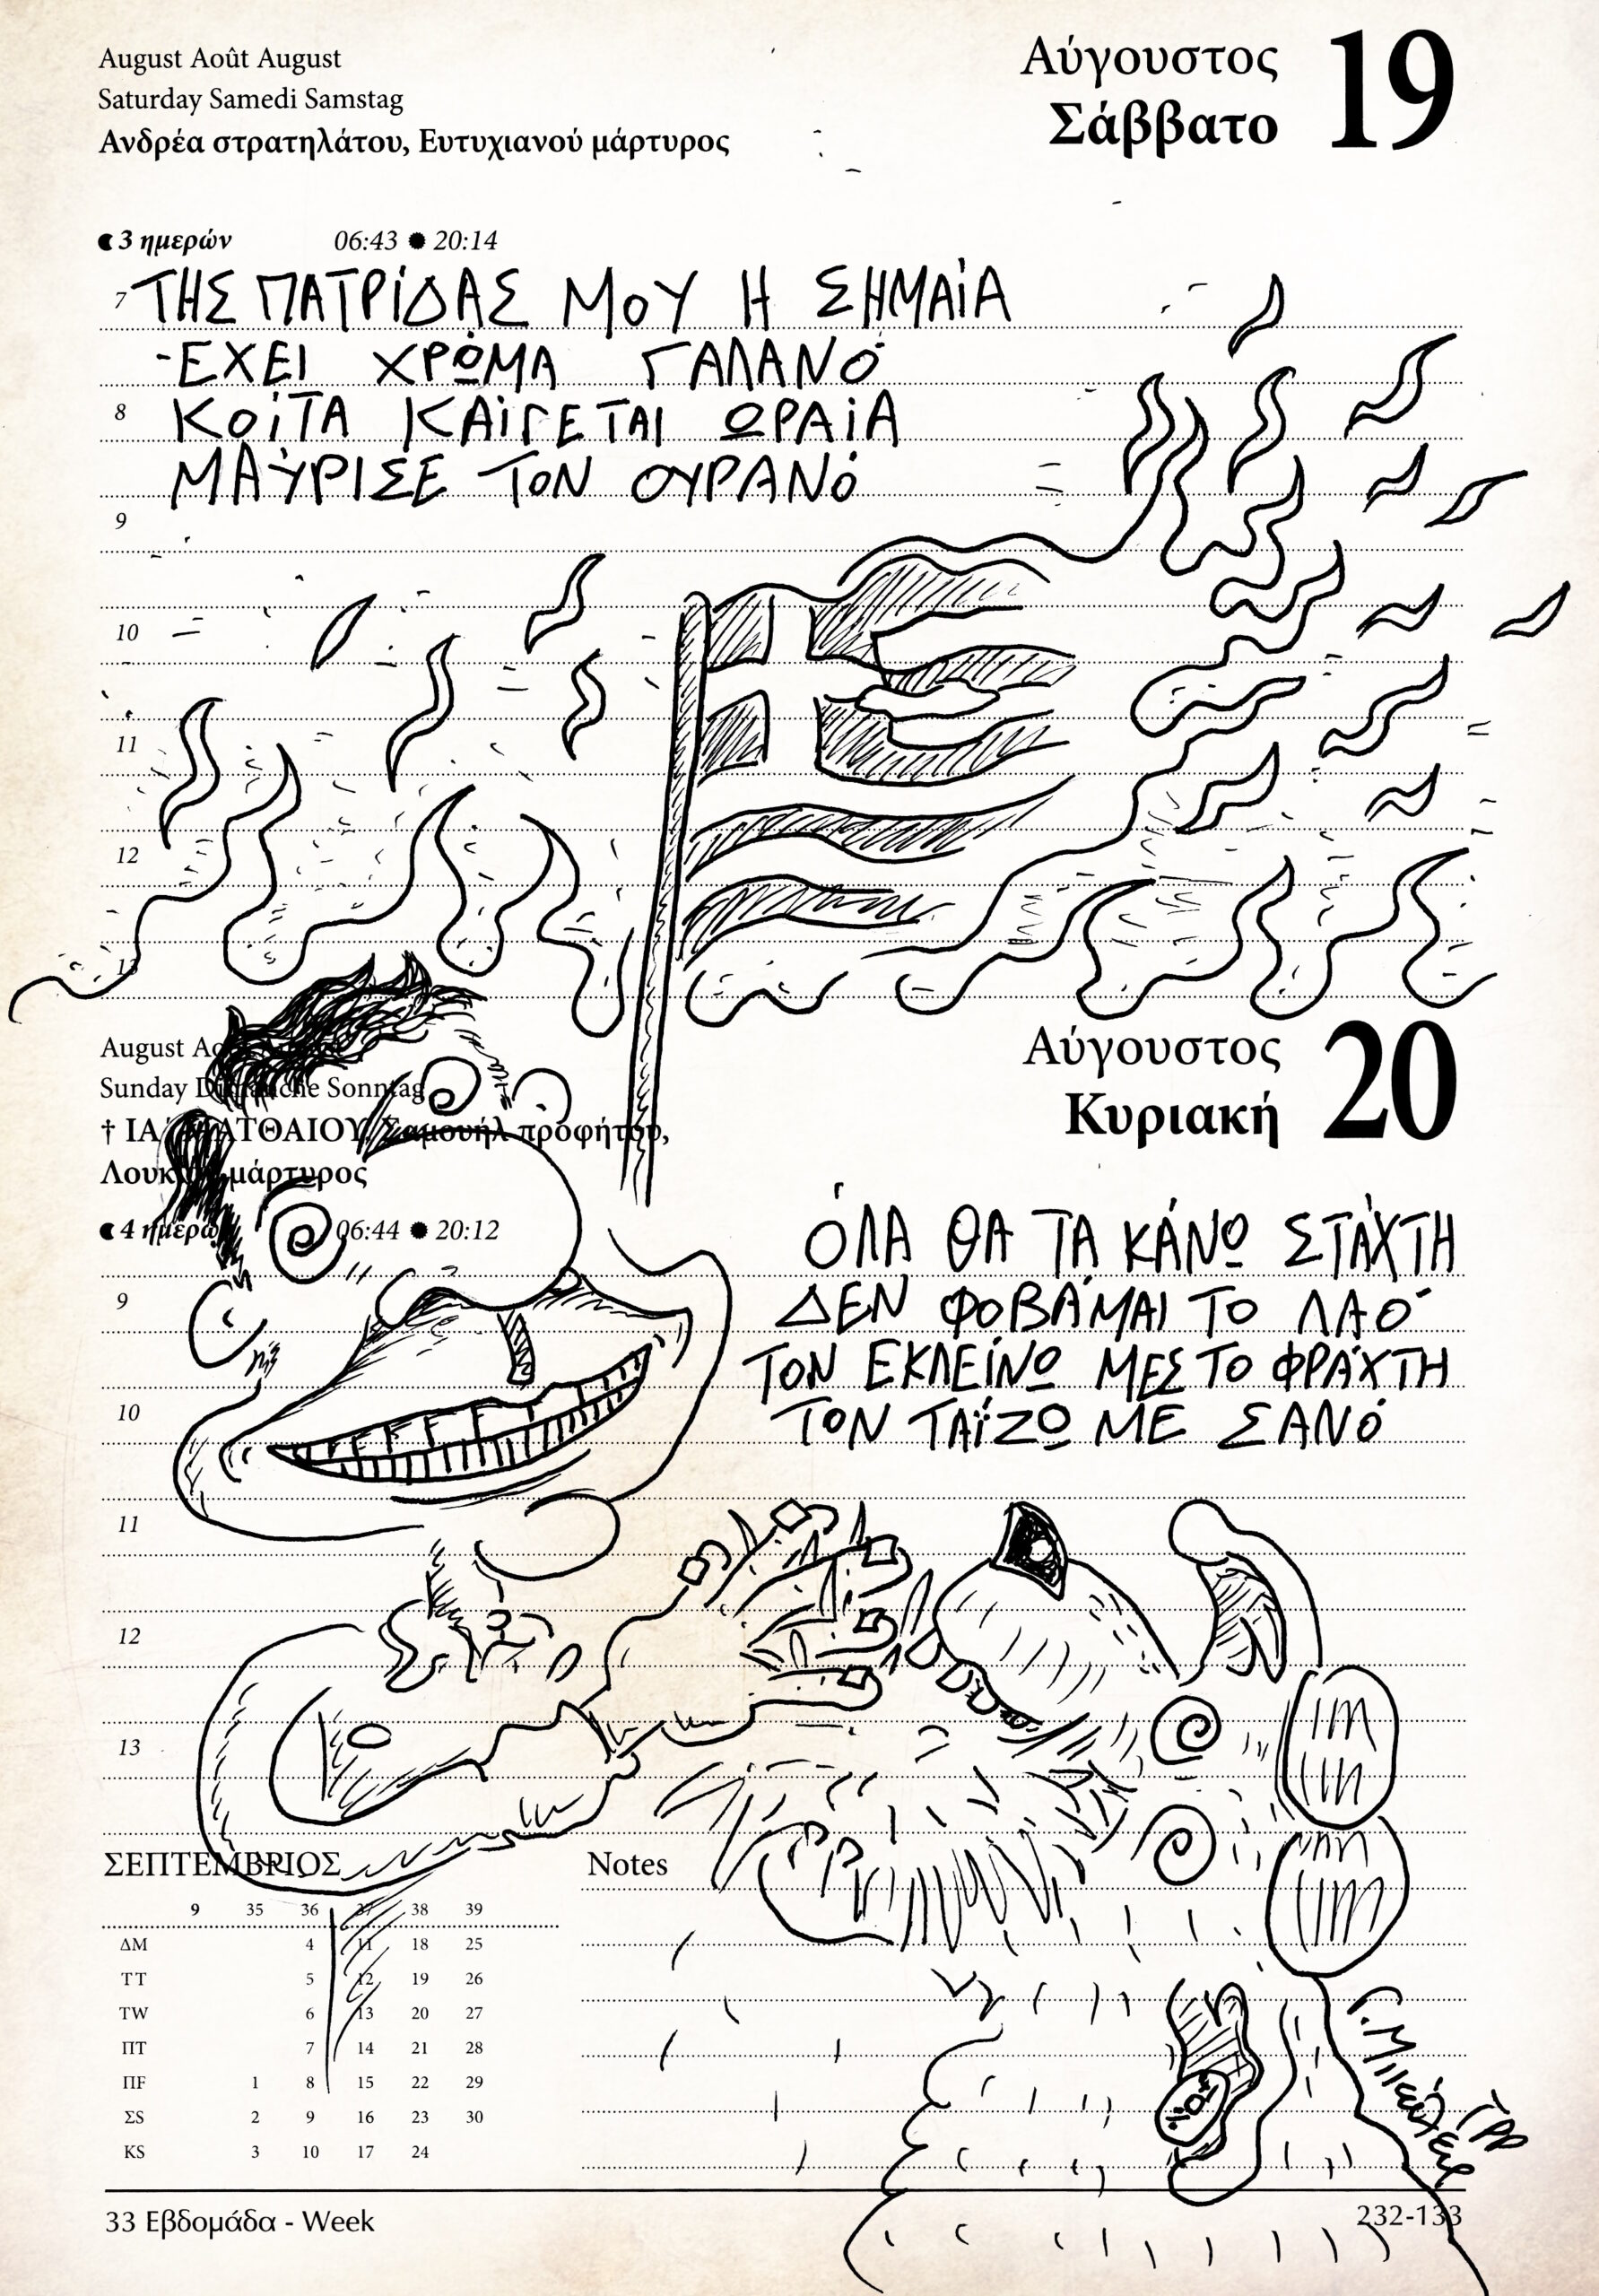 August Août August
Saturday Samedi Samstag
Ανδρέα στρατηλάτου, Ευτυχιανού μάρτυρος
Αύγουστος
Σάββατο
19
3 ημερών 06:43 20:14
7 ΤΗΣ ΠΑΤΡΊΔΑΣ ΜΟΥ Η ΣΗΜΑΊΑ
-ΕΧΕΙ ΧΡΏΜΑ ΓΑΛΑΝΌ
8 ΚΟΊΤΑ ΚΑΊΓΕΤΑΙ ΩΡΑΊΑ
ΜΑΎΡΙΣΕ ΤΟΝ ΟΥΡΑΝΌ
9
10
11
12
13
August
Sunday Dimanche Sonntag
† ΙΑ΄ ΜΑΤΘΑΙΟΥ, Σαμουήλ προφήτου,
μάρτυρος
Αύγουστος
Κυριακή
20
4 ημερών 06:44 20:12
ΌΛΑ ΘΑ ΤΑ ΚΆΝΩ ΣΤΆΧΤΗ
9 ΔΕΝ ΦΟΒΆΜΑΙ ΤΟ ΛΑΌ
ΤΟΝ ΕΚΛΕΊΝΩ ΜΕΣ ΤΟ ΦΡΆΧΤΗ
10 ΤΟΝ ΤΑΪ́ΖΩ ΜΕ ΣΑΝΌ
11
12
13
ΣΕΠΤΕΜΒΡΙΟΣ
Notes
9 35 36 37 38 39
ΔM 4 11 18 25
ΤT 5 12 19 26
ΤW 6 13 20 27
ΠT 7 14 21 28
ΠF 1 8 15 22 29
ΣS 2 9 16 23 30
ΚS 3 10 17 24
33 Εβδομάδα - Week
232-133